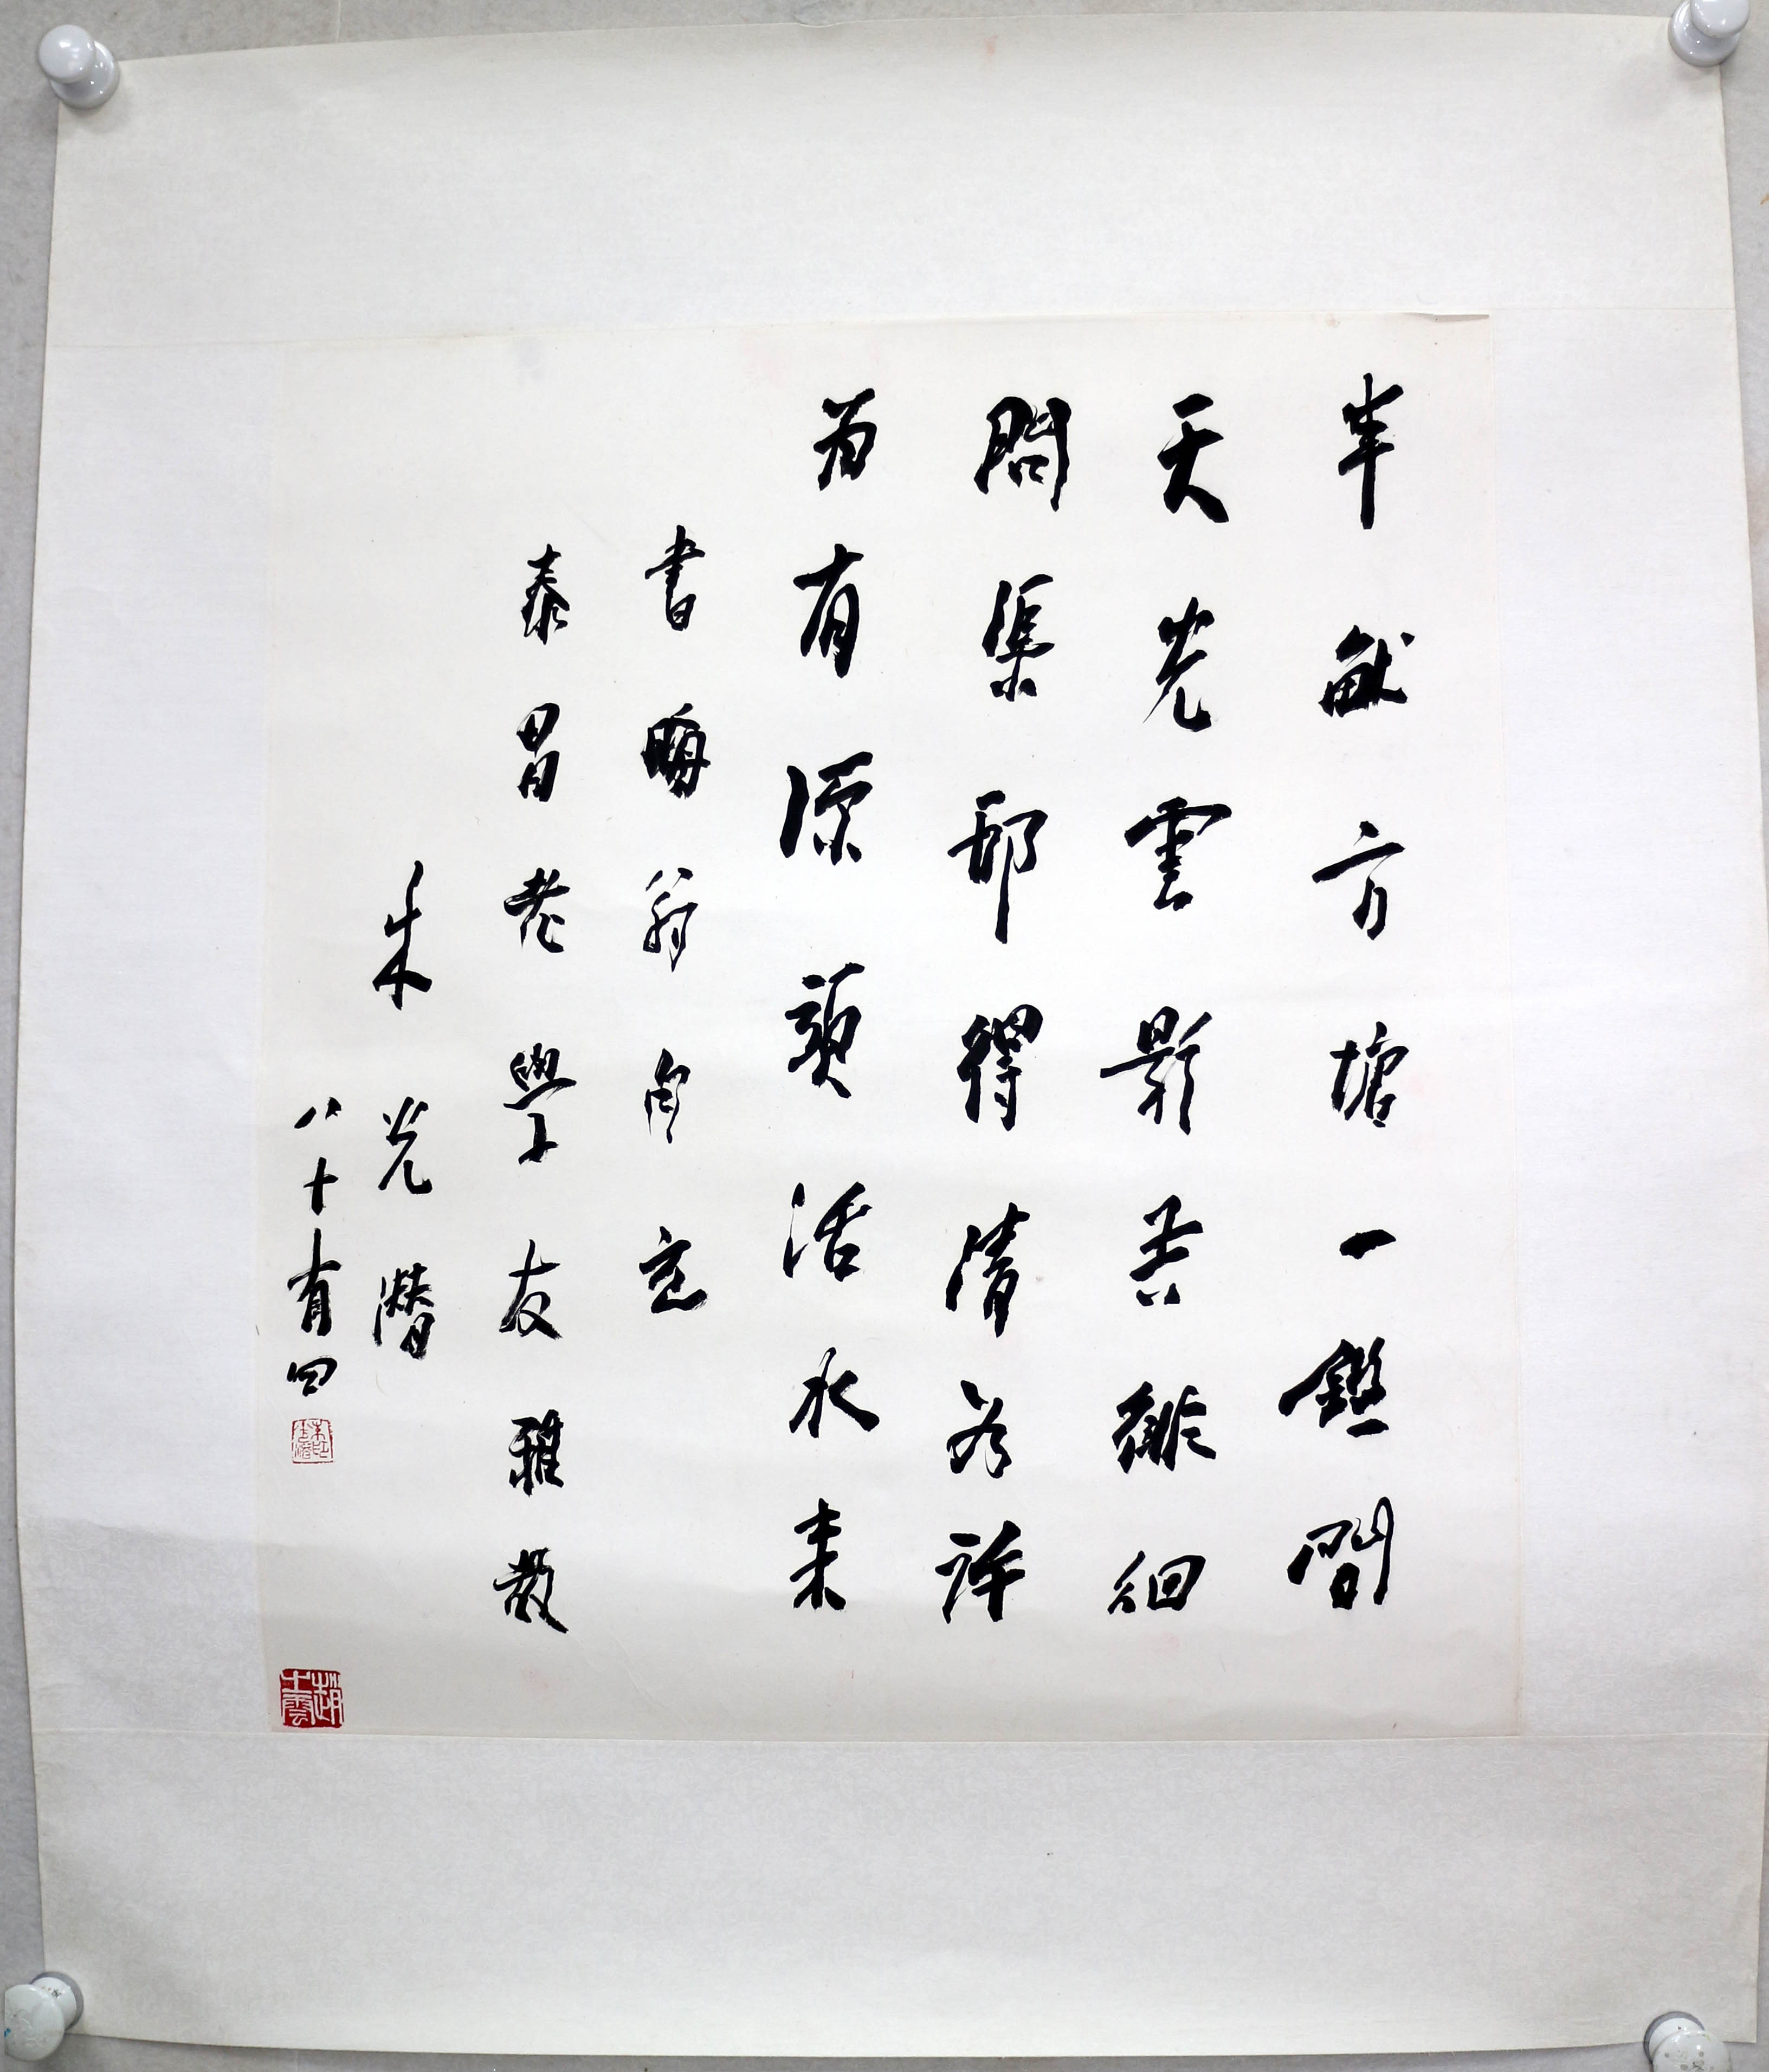 半畝方塘一鑑間
天光雲影共徘徊
問渠那得清若許
為有源頭活水来
書晦翁句应
泰昌老學友雅教
朱光潛
八十有四
朱光潛印